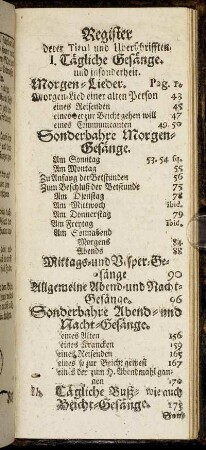 Register
derer Titul und Uberschrifften,
I. Tägliche Gesänge.
und insonderheit.
Morgen-Lieder. Pag. 1.
Morgen-Lied einer alten Person 43
eines Reisenden 45
eines so zur Beicht gehen will 47
eines Communicanten 49. 50
Sonderbahre Morgen-
Gesänge.
Am Sonntag 53. 54. 61.
Am Montag 55
Zu Anfang der Betstunden 56
Zum Beschluß der Betstunde 75
Am Dienstag 78
Am Mittwoch ibid.
Am Donnerstag 79
Am Freytag ibid.
Am Sonnabend
Morgens 84
Abends 88
Mittags-und Vesper-Ge-
sänge 90
Allgemeine Abend-und Nacht-
Gesänge. 96
Sonderbahre Abend-und
Nacht-Gesänge.
eines Alten 156
eines Krancken 159
eines Reisenden 165
eines so zur Beicht gewest 167
eines der zum H. Abendmahl gan-
gen 170
Tägliche Buß- wie auch
Beicht-Gesänge. 173